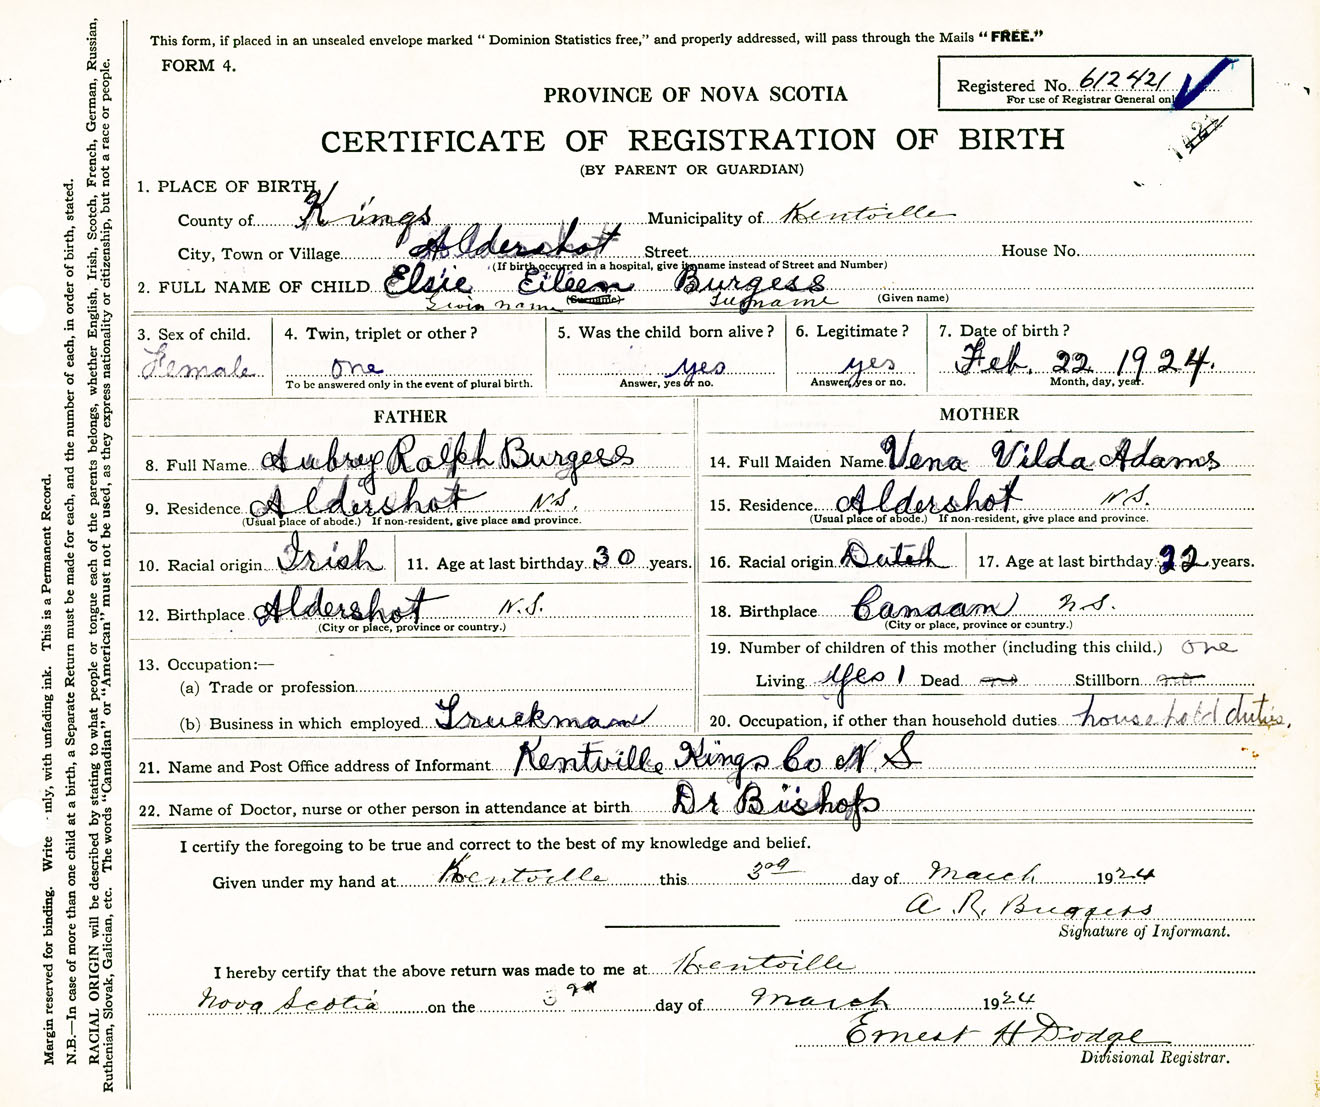 This form, if placed in an unsealed envelope marked “ Dominion Statistics free,” and properly addressed, will pass through the Mails “ FREE.”
FORM 4.
Registered No. 612421
For use of Registrar General only
PROVINCE OF NOVA SCOTIA
CERTIFICATE OF REGISTRATION OF BIRTH
(BY PARENT OR GUARDIAN)
1. PLACE OF BIRTH
County of Kings Municipality of Kentville
City, Town or Village Aldershot Street House No.
(If birth occurred in a hospital, give its name instead of Street and Number)
2. FULL NAME OF CHILD Elsie Eileen Burgess
Givin name (Surname) Surname (Given name)
3. Sex of child. 4. Twin, triplet or other ? 5. Was the child born alive ? 6. Legitimate ? 7. Date of birth ?
Female one yes yes Feb. 22 1924.
To be answered only in the event of plural birth. Answer, yes or no. Answer, yes or no. Month, day, year.
FATHER MOTHER
8. Full Name Aubrey Ralph Burgess 14. Full Maiden Name Vena Vilda Adams
9. Residence Aldershot N.S. 15. Residence Aldershot N.S.
(Usual place of abode.) If non-resident, give place and province. (Usual place of abode.) If non-resident, give place and province.
10. Racial origin Irish 11. Age at last birthday 30 years. 16. Racial origin Dutch 17. Age at last birthday 22 years.
12. Birthplace Aldershot N.S. 18. Birthplace Canaan N.S.
(City or place, province or country.) (City or place, province or country.)
13. Occupation:— 19. Number of children of this mother (including this child.) one
(a) Trade or profession Living yes 1 Dead no Stillborn no
(b) Business in which employed Truckman 20. Occupation, if other than household duties household duties.
21. Name and Post Office address of Informant Kentville Kings Co N S
22. Name of Doctor, nurse or other person in attendance at birth Dr Bishop
I certify the foregoing to be true and correct to the best of my knowledge and belief.
Given under my hand at Kentville this 3rd day of March 1924
A. R. Burgess
Signature of Informant.
I hereby certify that the above return was made to me at Kentville
Nova Scotia on the 3rd day of March 1924
Ernest H Dodge
Divisional Registrar.
Margin reserved for binding. Write only, with unfading ink. This is a Permanent Record.
N.B.—In case of more than one child at a birth, a Separate Return must be made for each, and the number of each, in order of birth, stated.
RACIAL ORIGIN will be described by stating to what people or tongue each of the parents belongs, whether English, Irish, Scotch, French, German, Russian,
Ruthenian, Slovak, Galician, etc. The words “Canadian” or “American” must not be used, as they express nationality or citizenship, but not a race or people.